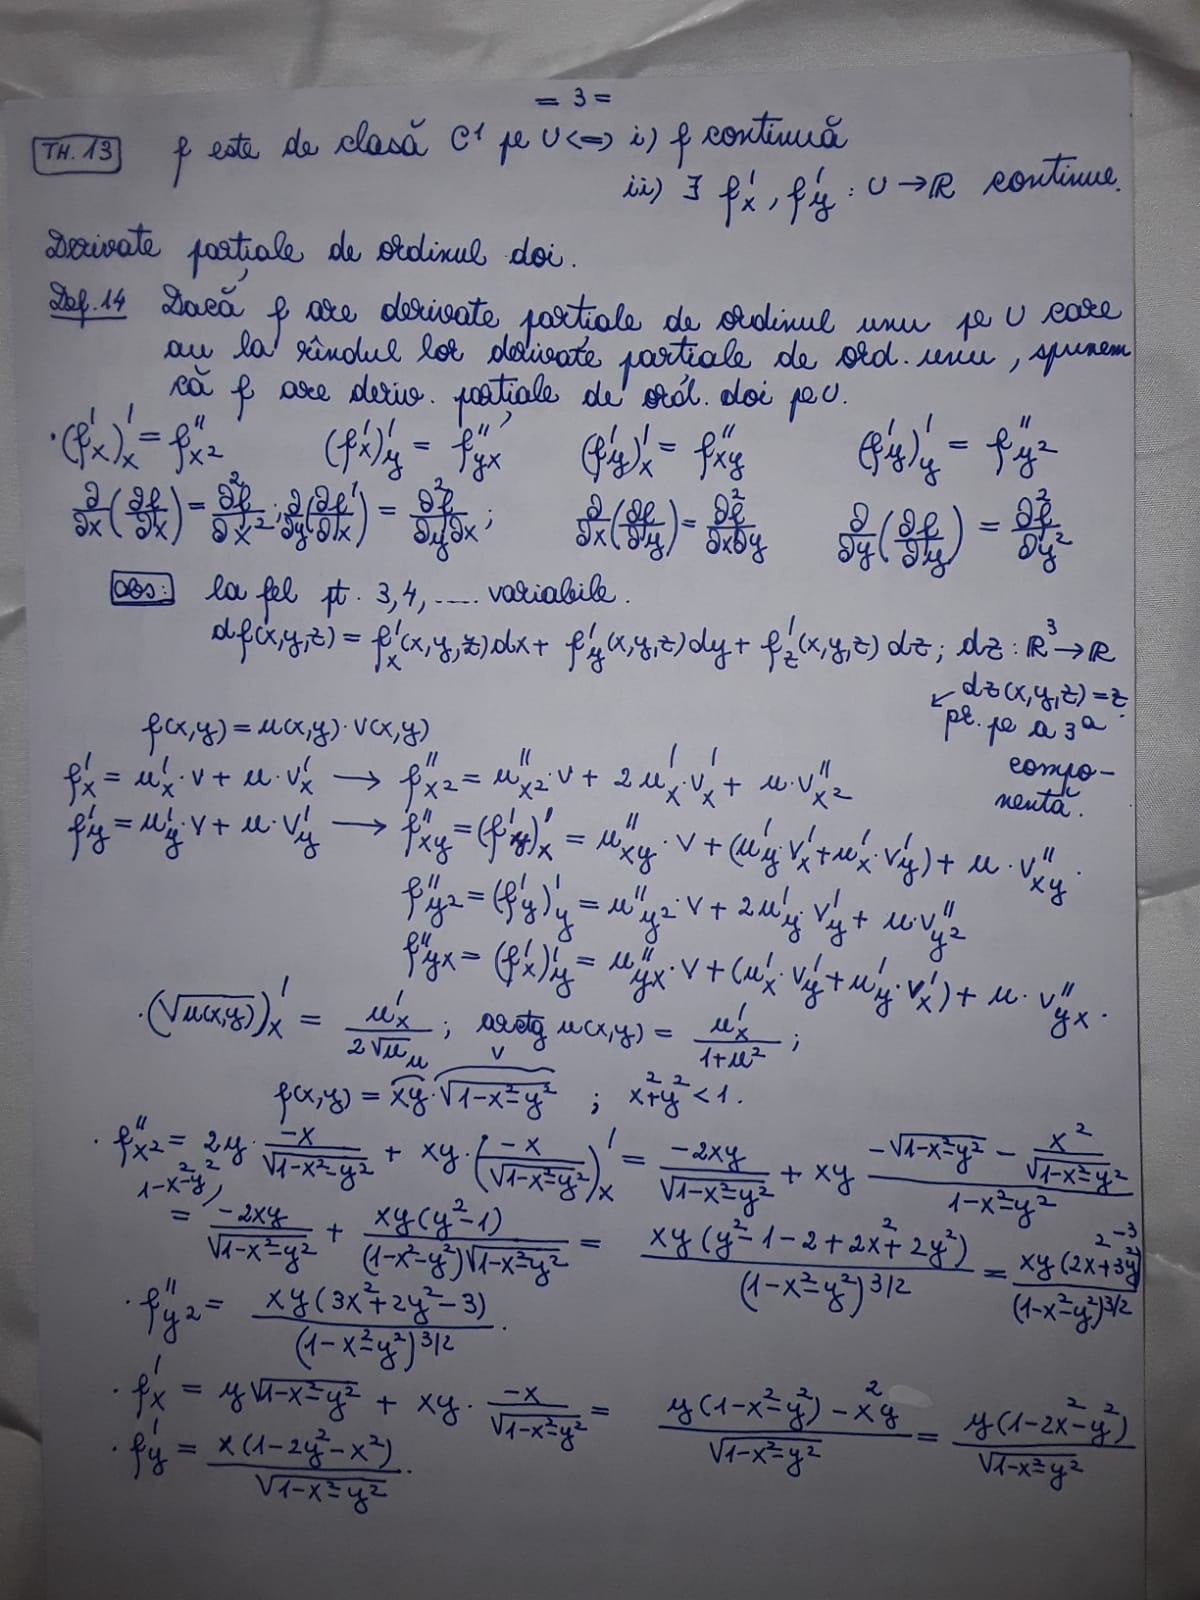 = 3 =
TH. 13 f este de clasă C¹ pe U <=> i) f continuă
ii) ∃ f'x, f'y : U → ℝ continue.
Derivate parțiale de ordinul doi.
Def. 14 Dacă f are derivate parțiale de ordinul unu pe U care
au la rîndul lor derivate parțiale de ord. unu, spunem
că f are deriv. parțiale de ord. doi pe U.
· (f'x)'x = f''x² (f'x)'y = f''yx (f'y)'x = f''xy (f'y)'y = f''y²
∂/∂x(∂f/∂x) = ∂²f/∂x² ; ∂/∂y(∂f/∂x) = ∂²f/∂y∂x ; ∂/∂x(∂f/∂y) = ∂²f/∂x∂y ∂/∂y(∂f/∂y) = ∂²f/∂y²
Obs: la fel pt. 3,4, .... variabile.
df(x,y,z) = f'x(x,y,z)dx + f'y(x,y,z)dy + f'z(x,y,z)dz ; dz : ℝ³ → ℝ
dz(x,y,z) = z
↙ pr. pe a 3ª
componentă.
f(x,y) = u(x,y)·v(x,y)
f'x = u'x·v + u·v'x → f''x² = u''x²·v + 2u'x·v'x + u·v''x²
f'y = u'y·v + u·v'y → f''xy = (f'y)'x = u''xy·v + (u'y·v'x + u'x·v'y) + u·v''xy.
f''y² = (f'y)'y = u''y²·v + 2u'y·v'y + u·v''y²
f''yx = (f'x)'y = u''yx·v + (u'x·v'y + u'y·v'x) + u·v''yx.
· (√u(x,y))'x = u'x/2√u ; arctg u(x,y) = u'x/1+u² ;
u v
f(x,y) = xy·√1-x²-y² ; x²+y² < 1.
· f''x² = 2y·-x/√1-x²-y² + xy·(-x/√1-x²-y²)'x = -2xy/√1-x²-y² + xy (-√1-x²-y² - x²/√1-x²-y²)/1-x²-y²
1-x²-y²
= -2xy/√1-x²-y² + xy(y²-1)/(1-x²-y²)√1-x²-y² = xy(y²-1-2+2x²+2y²)/(1-x²-y²)3/2 = xy(2x²+3y²-3)/(1-x²-y²)3/2
· f''y² = xy(3x²+2y²-3)/(1-x²-y²)3/2.
· f'x = y√1-x²-y² + xy·-x/√1-x²-y² = y(1-x²-y²)-x²y/√1-x²-y² = y(1-2x²-y²)/√1-x²-y²
· f'y = x(1-2y²-x²)/√1-x²-y².